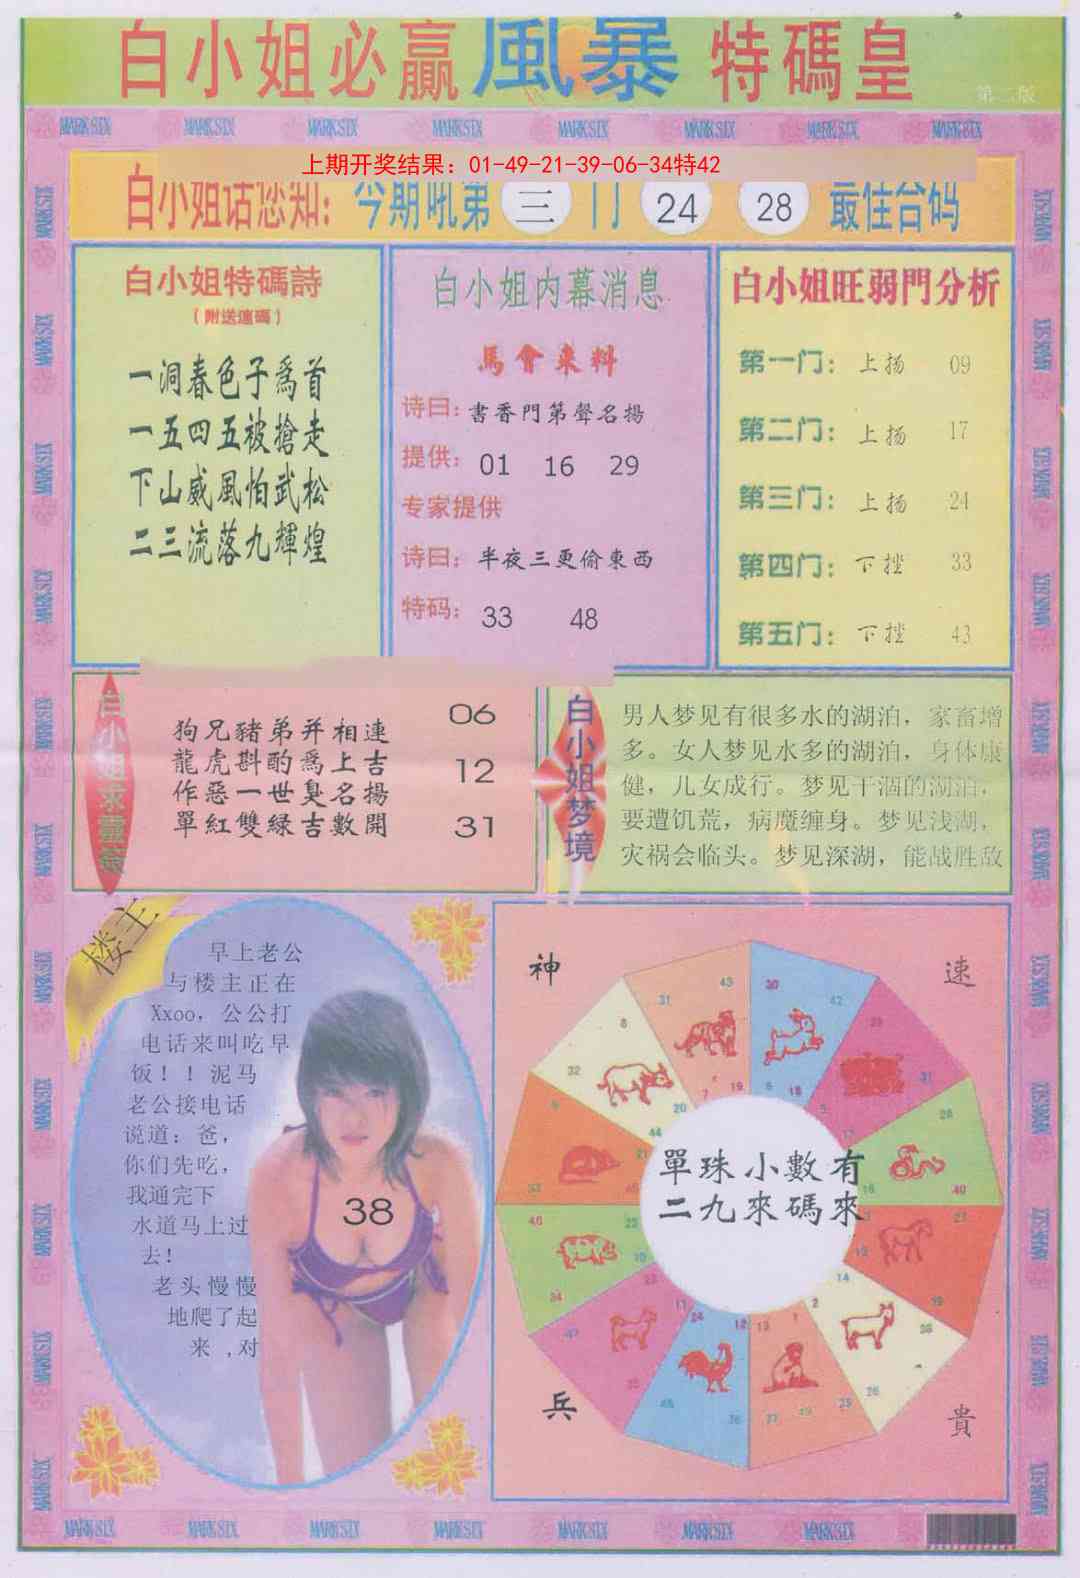 白小姐必贏風暴特碼皇
第二版
MARK SIX MARK SIX MARK SIX MARK SIX MARK SIX MARK SIX MARK SIX MARK SIX
上期开奖结果：01-49-21-39-06-34特42
白小姐话您知：今期吼第三门 24 28 最佳合码
白小姐特碼詩
（附送連碼）
一洞春色子爲首
一五四五被搶走
下山威風怕武松
二三流落九輝煌
白小姐内幕消息
馬會來料
诗曰：書香門第聲名揚
提供：01 16 29
专家提供
诗曰：半夜三更偷東西
特码：33 48
白小姐旺弱門分析
第一门：上扬 09
第二门：上扬 17
第三门：上扬 24
第四门：下挫 33
第五门：下挫 43
狗兄豬弟并相連
龍虎斟酌爲上吉
作惡一世臭名揚
單紅雙緑吉數開
06
12
31
白小姐梦境
男人梦见有很多水的湖泊，家畜增
多。女人梦见水多的湖泊，身体康
健，儿女成行。梦见干涸的湖泊，
要遭饥荒，病魔缠身。梦见浅湖，
灾祸会临头。梦见深湖，能战胜敌
楼主
早上老公
与楼主正在
Xxoo，公公打
电话来叫吃早
饭！！泥马
老公接电话
说道：爸，
你们先吃，
我通完下
水道马上过
去！
老头慢慢
地爬了起
来 ,对
38
神
速
兵
貴
單珠小數有
二九來碼來
MARK SIX MARK SIX MARK SIX MARK SIX MARK SIX MARK SIX MARK SIX